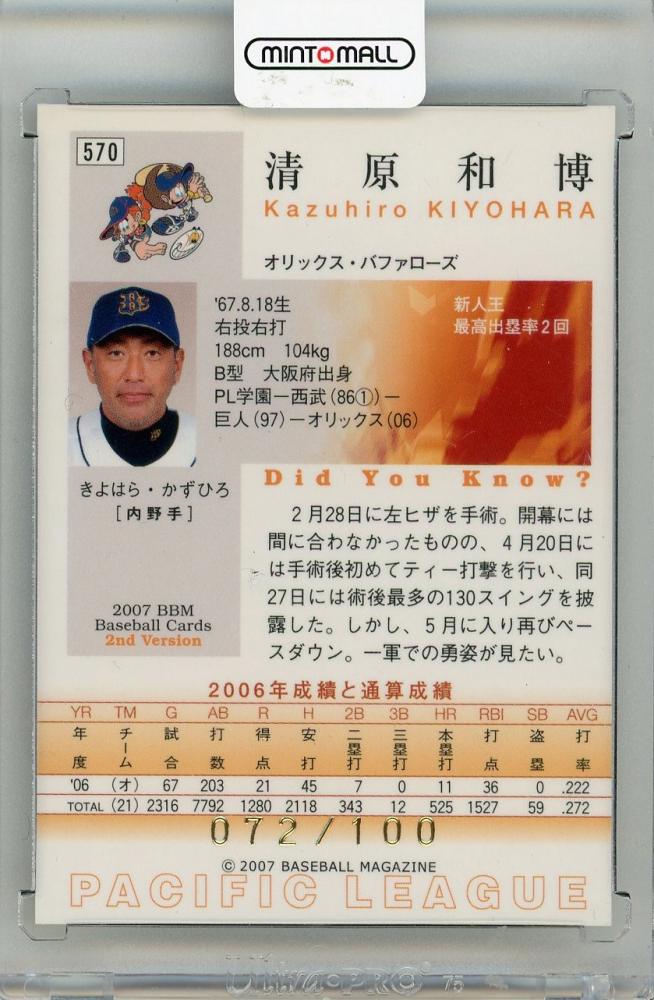 MINT MALL
570
清原和博
Kazuhiro KIYOHARA
オリックス・バファローズ
'67.8.18生
右投右打
188cm 104kg
B型 大阪府出身
PL学園－西武(86①)－
巨人(97)－オリックス(06)
新人王
最高出塁率2回
きよはら・かずひろ
[内野手]
2007 BBM
Baseball Cards
2nd Version
Did You Know?
2月28日に左ヒザを手術。開幕には
間に合わなかったものの、4月20日に
は手術後初めてティー打撃を行い、同
27日には術後最多の130スイングを披
露した。しかし、5月に入り再びペー
スダウン。一軍での勇姿が見たい。
2006年成績と通算成績
YR TM G AB R H 2B 3B HR RBI SB AVG
年度 チーム 試合 打数 得点 安打 二塁打 三塁打 本塁打 打点 盗塁 打率
'06 (オ) 67 203 21 45 7 0 11 36 0 .222
TOTAL (21) 2316 7792 1280 2118 343 12 525 1527 59 .272
072/100
© 2007 BASEBALL MAGAZINE
PACIFIC LEAGUE
Ultra·PRO 75